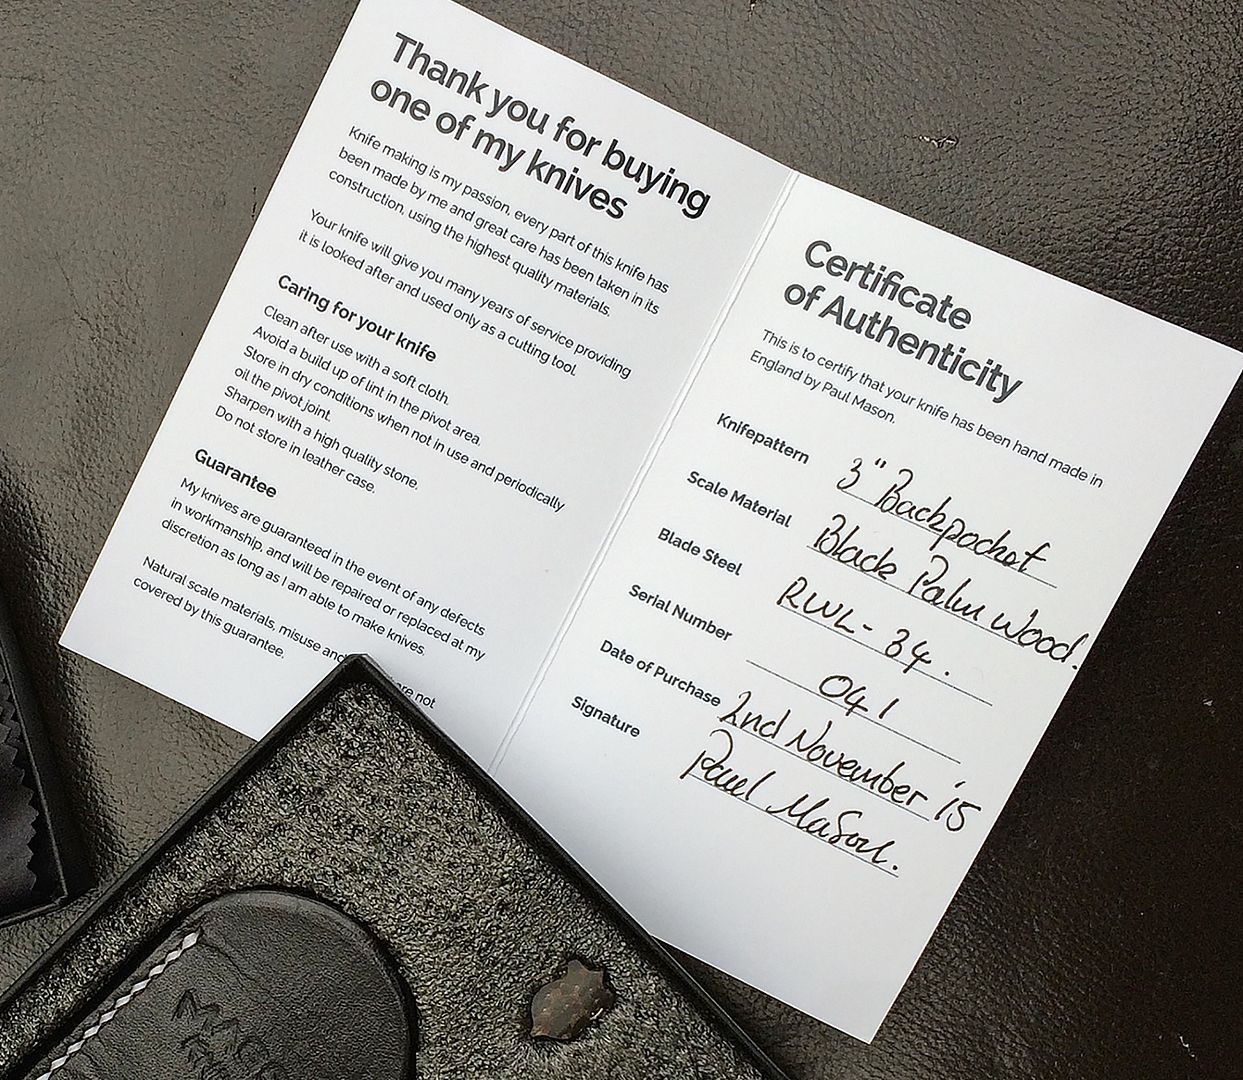 Thank you for buying
one of my knives
Knife making is my passion, every part of this knife has
been made by me and great care has been taken in its
construction, using the highest quality materials.
Your knife will give you many years of service providing
it is looked after and used only as a cutting tool.
Caring for your knife
Clean after use with a soft cloth.
Avoid a build up of lint in the pivot area.
Store in dry conditions when not in use and periodically
oil the pivot joint.
Sharpen with a high quality stone.
Do not store in leather case.
Guarantee
My knives are guaranteed in the event of any defects
in workmanship, and will be repaired or replaced at my
discretion as long as I am able to make knives.
Natural scale materials, misuse and are not
covered by this guarantee.
Certificate
of Authenticity
This is to certify that your knife has been hand made in
England by Paul Mason.
Knifepattern 3" Backpocket
Scale Material Black Palm Wood.
Blade Steel RWL-34.
Serial Number 041
Date of Purchase 2nd November '15
Signature Paul Mason.